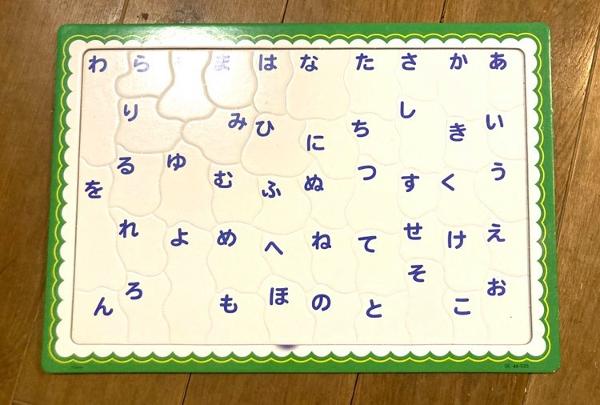 あいうえお
かきくけこ
さしすせそ
たちつてと
なにぬねの
はひふへほ
まみむめも
ゆよ
らりるれろ
わをん